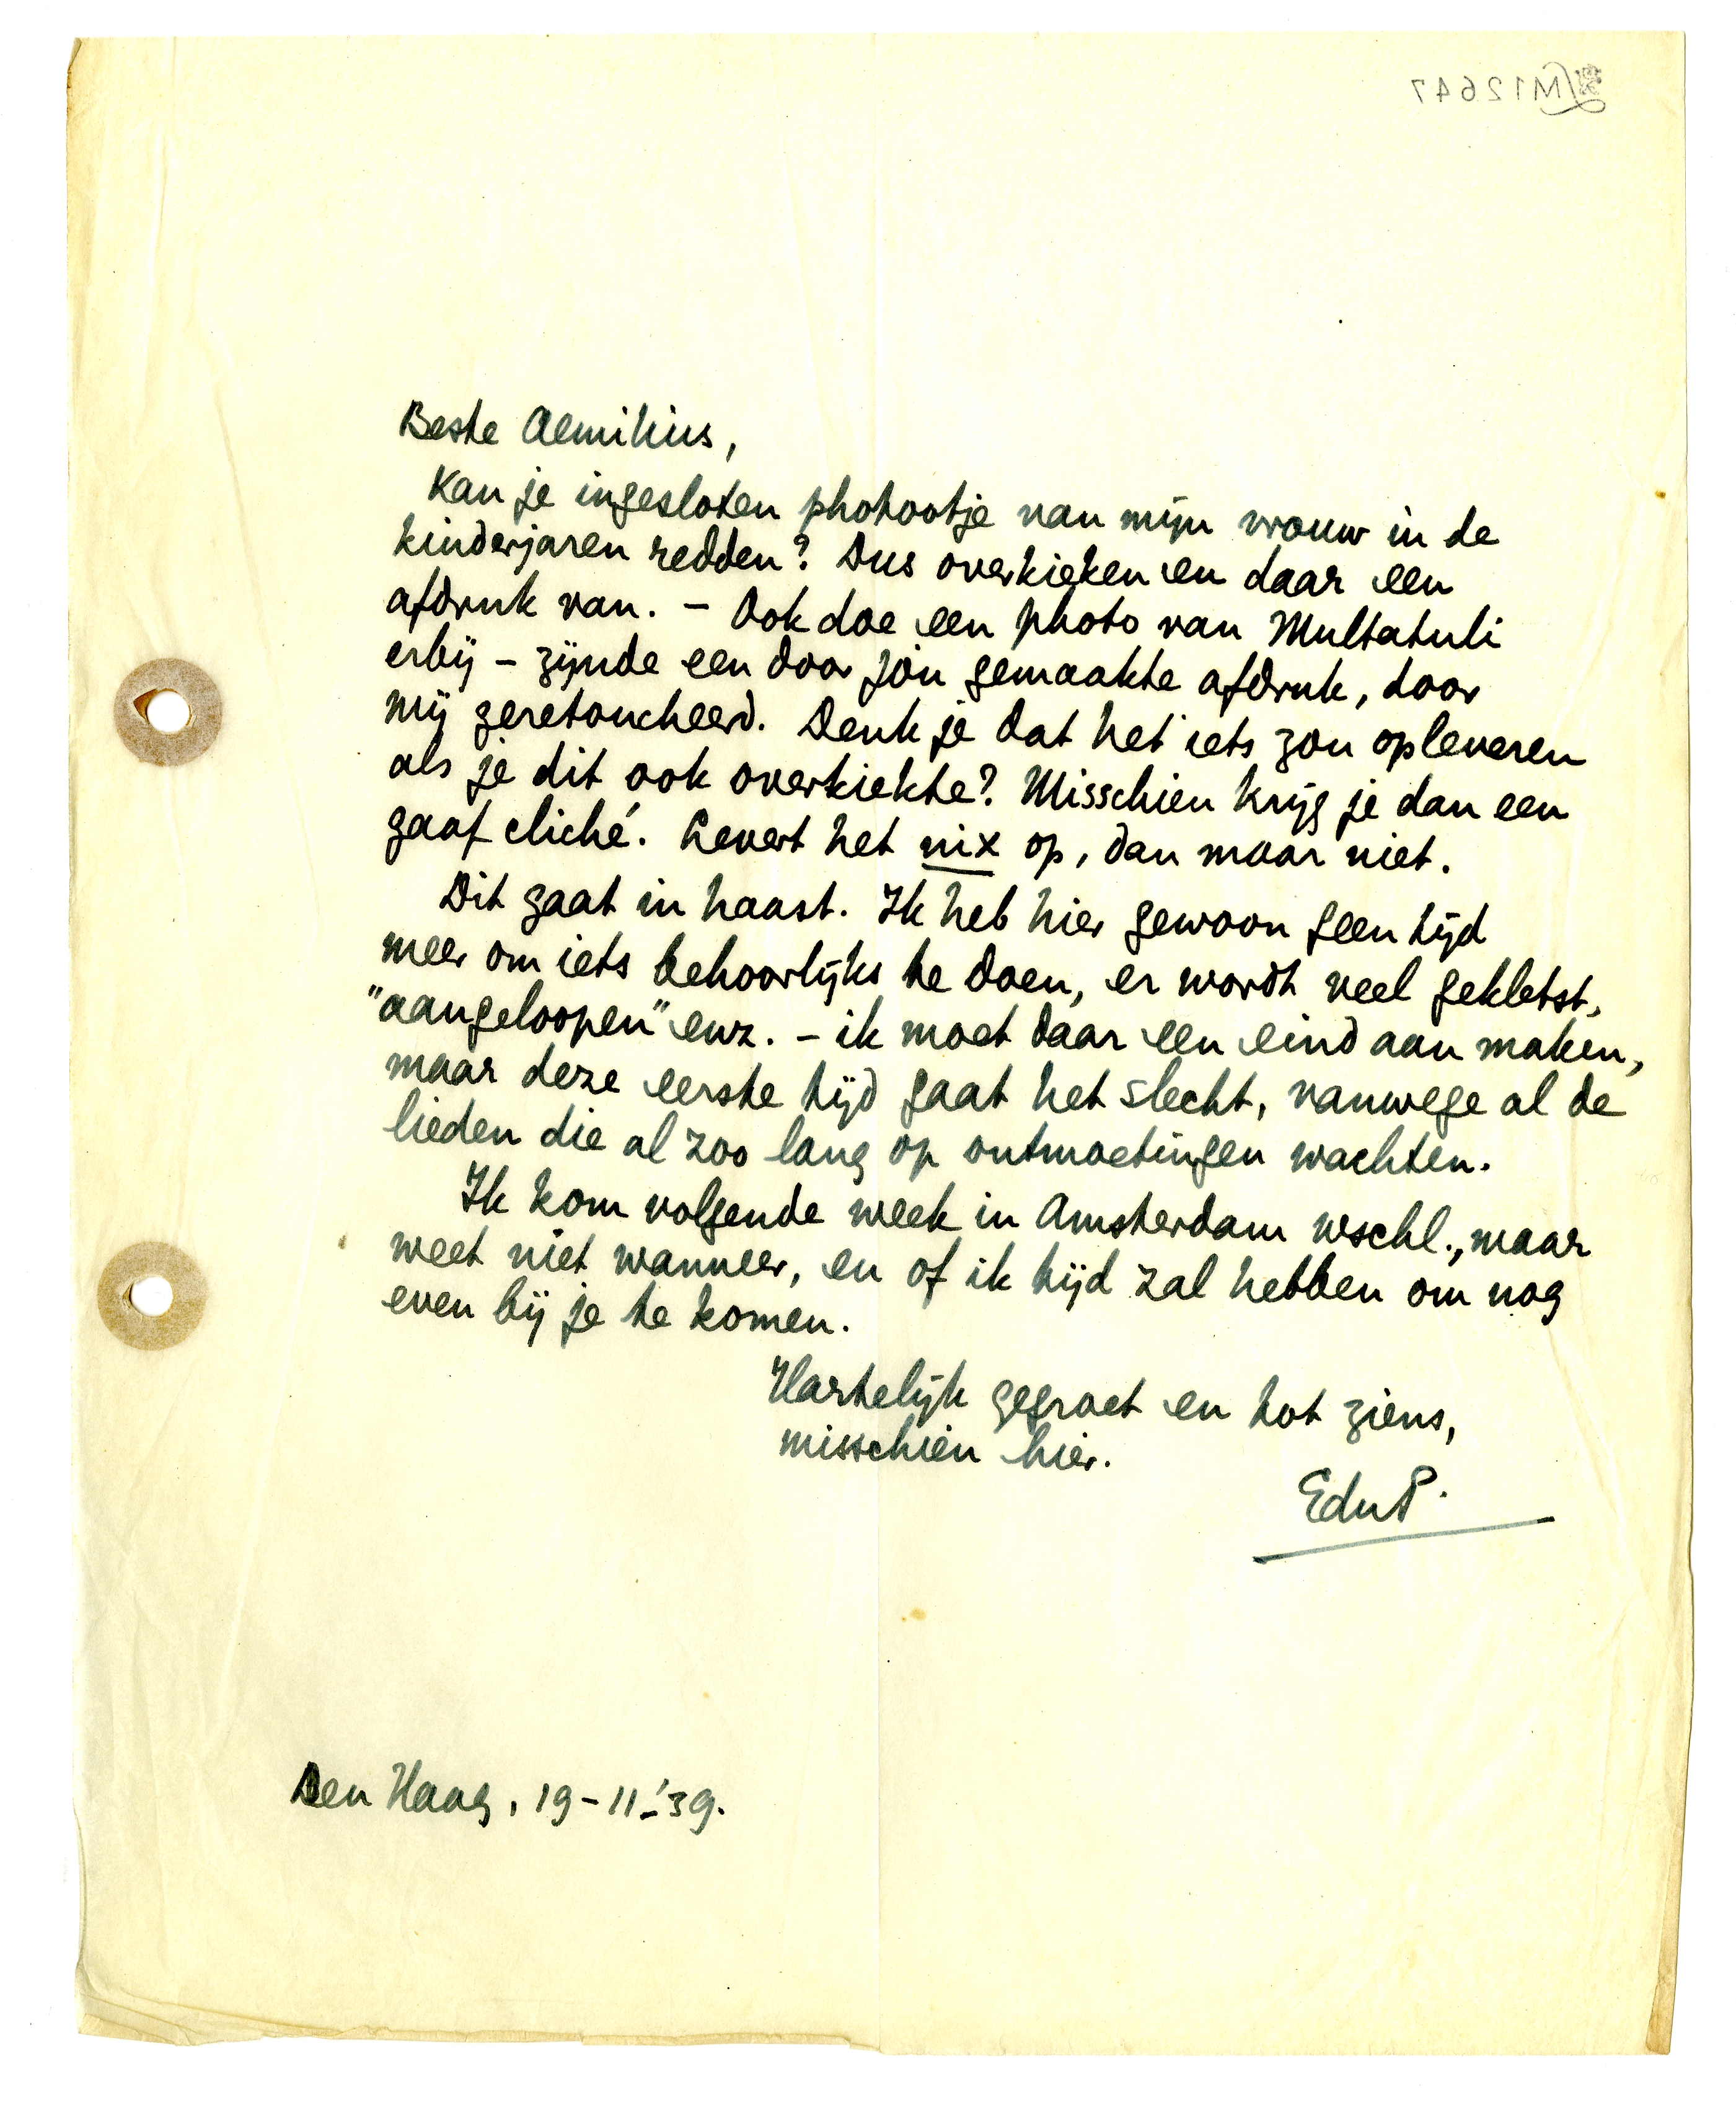 M12647
Beste Aemilius,
Kan je ingesloten photootje van mijn vrouw in de
kinderjaren redden? Dus overkieken en daar een
afdruk van. – Ook doe een photo van Multatuli
erbij – zijnde een door jou gemaakte afdruk, door
mij geretoucheerd. Denk je dat het iets zou opleveren
als je dit ook overkiekte? Misschien krijg je dan een
gaaf cliché. Levert het nix op, dan maar niet.
Dit gaat in haast. Ik heb hier gewoon geen tijd
meer om iets behoorlijks te doen, er wordt veel gekletst,
"aangeloopen" enz. – ik moet daar een eind aan maken,
maar deze eerste tijd gaat het slecht, vanwege al de
lieden die al zoo lang op ontmoetingen wachten.
Ik kom volgende week in Amsterdam wschl., maar
weet niet wanneer, en of ik tijd zal hebben om nog
even bij je te komen.
Hartelijk gegroet en tot ziens,
misschien hier.
EduP.
Den Haag, 19-11-'39.